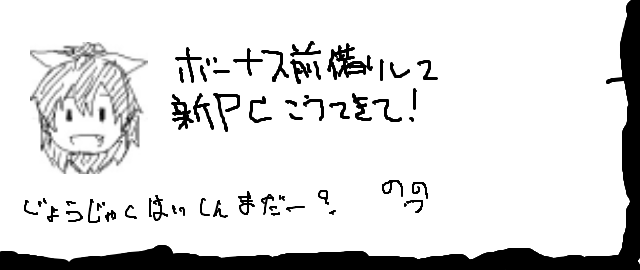 ボーナス前借りして
新PCこうてきて!
じょうじゃくはいしんまだー?